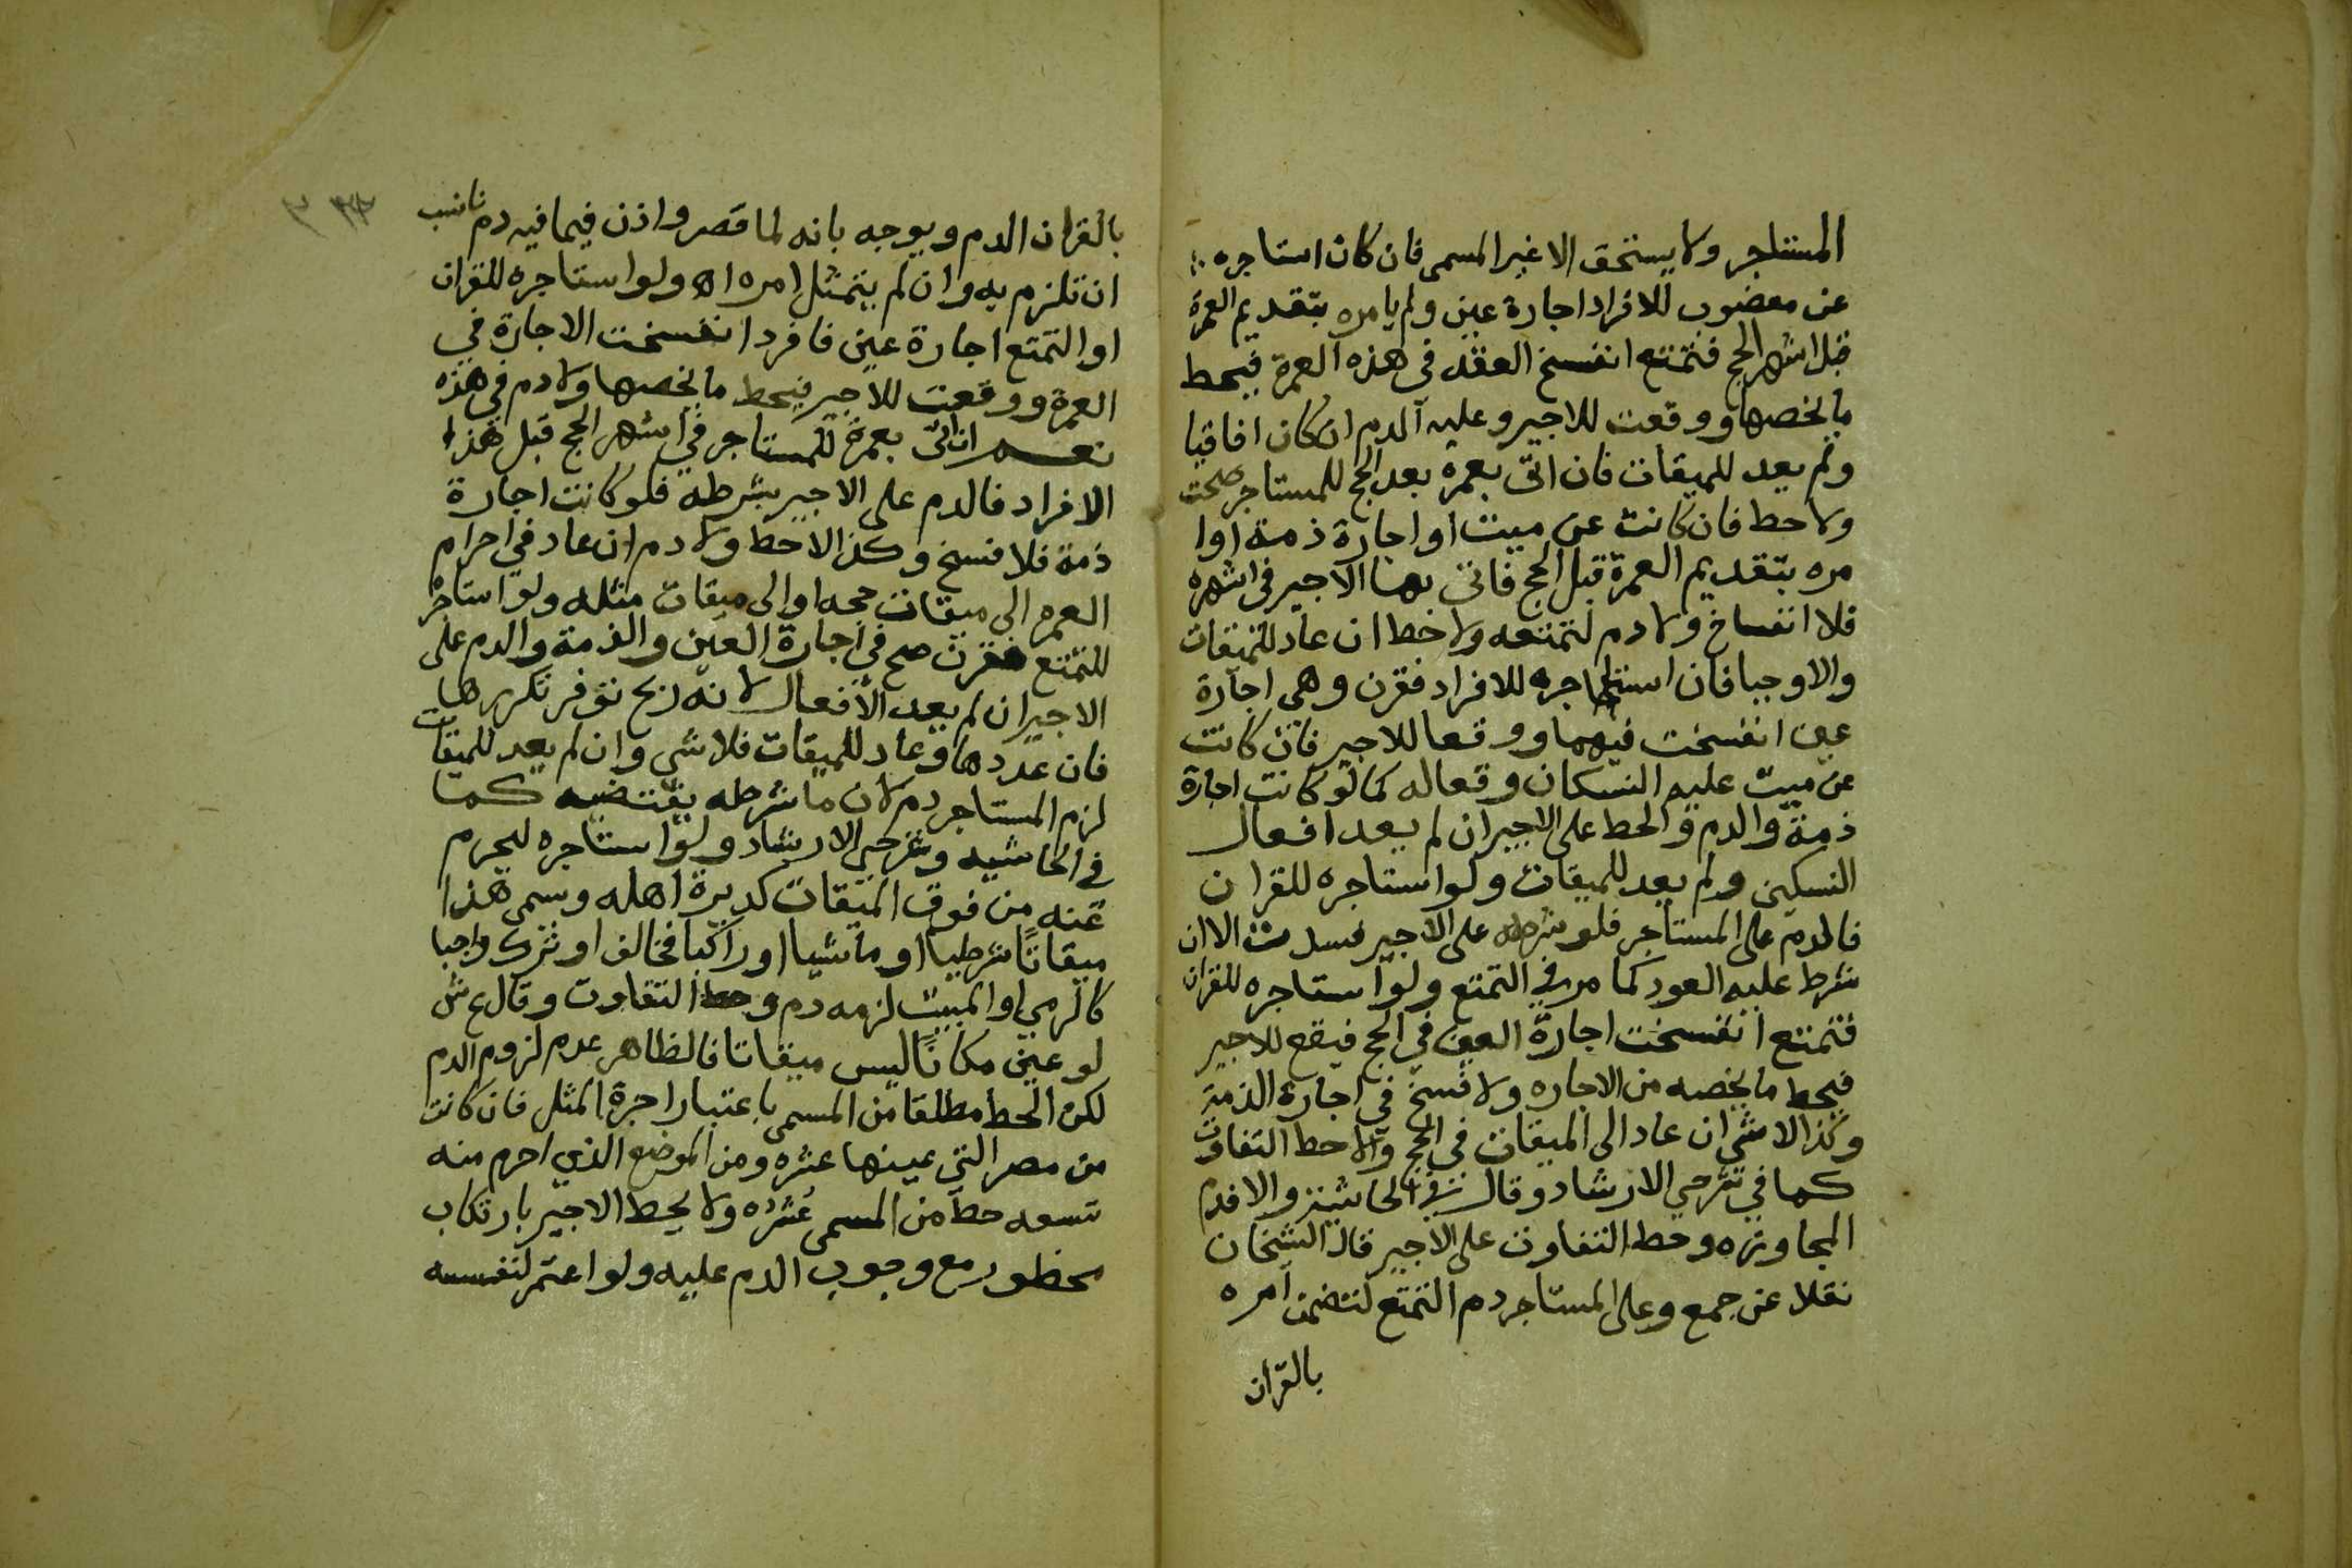 المستاجر ولا يستحق الا غير المسمى فان كان استاجره
عن معضوب للافراد اجارة عين ولم يامره بتقديم العمرة
قبل اشهر الحج فتمتع انفسخ العقد في هذه العمرة فيحط
ما يخصها ووقعت للاجير وعليه الدم ان كان افاقيا
ولم يعد للميقات فان اتى بعمرة بعد الحج للمستاجر صحت
ولا حط فان كانت عن ميت او اجارة ذمة او ا
مره بتقديم العمرة قبل الحج فاتى بها الاجير في اشهره
فلا انفساخ ولا دم لتمتعه ولا حط ان عاد للميقات
والا وجبا فان استاجره للافراد فقرن وهي اجارة
عين انفسخت فيهما ووقعا للاجير فان كانت
عن ميت عليه النسكان وقعا له كما لو كانت اجارة
ذمة والدم والحط على الاجير ان لم يعد افعال
النسكين ولم يعد للميقات ولو استاجره للقران
فالدم على المستاجر فلو شرطه على الاجير فسدت الا ان
شرط عليه العود كما مر في التمتع ولو استاجره للقران
فتمتع انفسخت اجارة العين في الحج فيقع للاجير
فيحط ما يخصه من الاجاره ولا فسخ في اجارة الذمة
وكذا لا شي ان عاد الى الميقات في الحج والا حط التفاوت
كما في شرحي الارشاد وقال في الحاشية والا فدم
المجاوزه وحط التفاوت على الاجير قال الشيخان
نقلا عن جمع وعلى المستاجر دم التمتع لتضمن امره
بالقران
٣٣
بالقران الدم ويوجه بانه لما قصر واذن فيما فيه دم ناسب
ان تلزم به وان لم يتمثل امره اه ولو استاجره للقران
او التمتع اجارة عين فافرد انفسخت الاجارة في
العمرة ووقعت للاجير فيحط ما يخصها ولا دم في هذه
نعم ان اتى بعمرة للمستاجر في اشهر الحج قبل هذا
الافراد فالدم على الاجير بشرطه فلو كانت اجارة
ذمة فلا فسخ وكذا لا حط ولا دم ان عاد في احرام
العمرة الى ميقات حجه او الى ميقات مثله ولو استاجر
للتمتع فقرن صح في اجارة العين والذمة والدم على
الاجير ان لم يعد الافعال لانه ربح توفر تكريرها
فان عددها وعاد للميقات فلا شي وان لم يعد للميقات
لزم المستاجر دم لان ما شرطه يقتضيه كما
في الحاشيه وشرحي الارشاد ولو استاجره ليحرم
عنه من فوق الميقات كدبرة اهله وسمى هذا
ميقاتًا شرطيا او ماشيا او راكبا فخالف او ترك واجبا
كالرمي او المبيت لزمه دم وحط التفاوت وقال ع ش
لو عين مكانًا ليس ميقاتا فالظاهر عدم لزوم الدم
لكن الحط مطلقا من المسمى باعتبار اجرة المثل فان كانت
من مصر التي عينها عشره ومن الموضع الذي احرم منه
تسعه حط من المسمى عُشره ولا يحط الاجير بارتكاب
محظور مع وجوب الدم عليه ولو اعتمر لنفسه